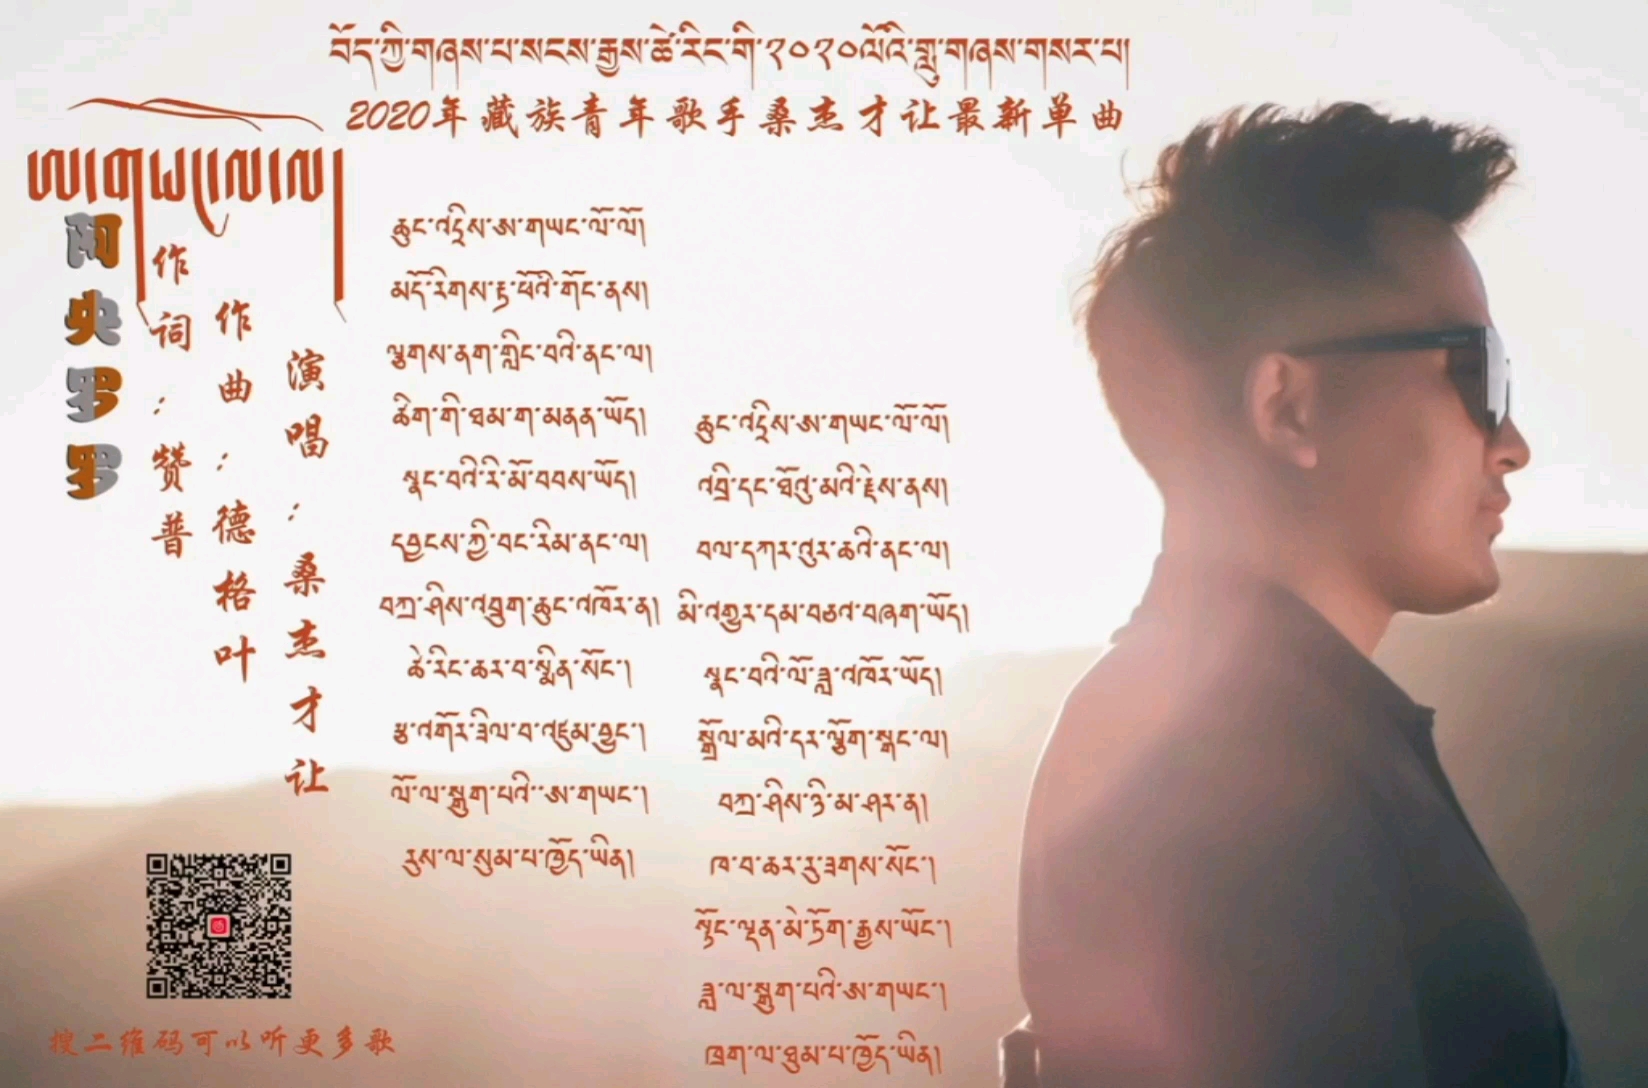 བོད་ཀྱི་གཞས་པ་སངས་རྒྱས་ཚེ་རིང་གི་༢༠༢༠ལོའི་གླུ་གཞས་གསར་པ།
2020年藏族青年歌手桑杰才让最新单曲
ཨ་གཡང་ལོ་ལོ།
阿央罗罗
作词：赞普
作曲：德格叶
演唱：桑杰才让
ཆུང་འདྲིས་ཨ་གཡང་ལོ་ལོ།
མདོ་རིགས་རྟ་ཕོའི་གོང་ནས།
ལྕགས་ནག་གླིང་བའི་ནང་ལ།
ཚིག་གི་ཐམ་ག་མནན་ཡོད།
སྣང་བའི་རི་མོ་བབས་ཡོད།
དབྱངས་ཀྱི་བང་རིམ་ནང་ལ།
བཀྲ་ཤིས་འབྲུག་ཆུང་འཁོར་ན།
ཚེ་རིང་ཆར་བ་སྨིན་སོང་།
རྩྭ་འགོར་ཟིལ་བ་འཛུམ་བྱུང་།
ལོ་ལ་སྒུག་པའི་ཨ་གཡང་།
རུས་ལ་སུམ་པ་ཁྱོད་ཡིན།
ཆུང་འདྲིས་ཨ་གཡང་ལོ་ལོ།
འབྲི་དང་ཐོའུ་མའི་རྗེས་ནས།
བལ་དཀར་འུར་ཆའི་ནང་ལ།
མི་འགྱུར་དམ་བཅའ་བཞག་ཡོད།
སྣང་བའི་ལོ་ཟླ་འཁོར་ཡོད།
སྒྲོལ་མའི་དར་ལྕོག་སྒང་ལ།
བཀྲ་ཤིས་ཉི་མ་ཤར་ན།
ཁ་བ་ཆར་རུ་ཟགས་སོང་།
སྟོང་ལྡན་མེ་ཏོག་རྒྱས་ཡོང་།
ཟླ་ལ་སྒུག་པའི་ཨ་གཡང་།
ཁྲག་ལ་ཐུམ་པ་ཁྱོད་ཡིན།
搜二维码可以听更多歌